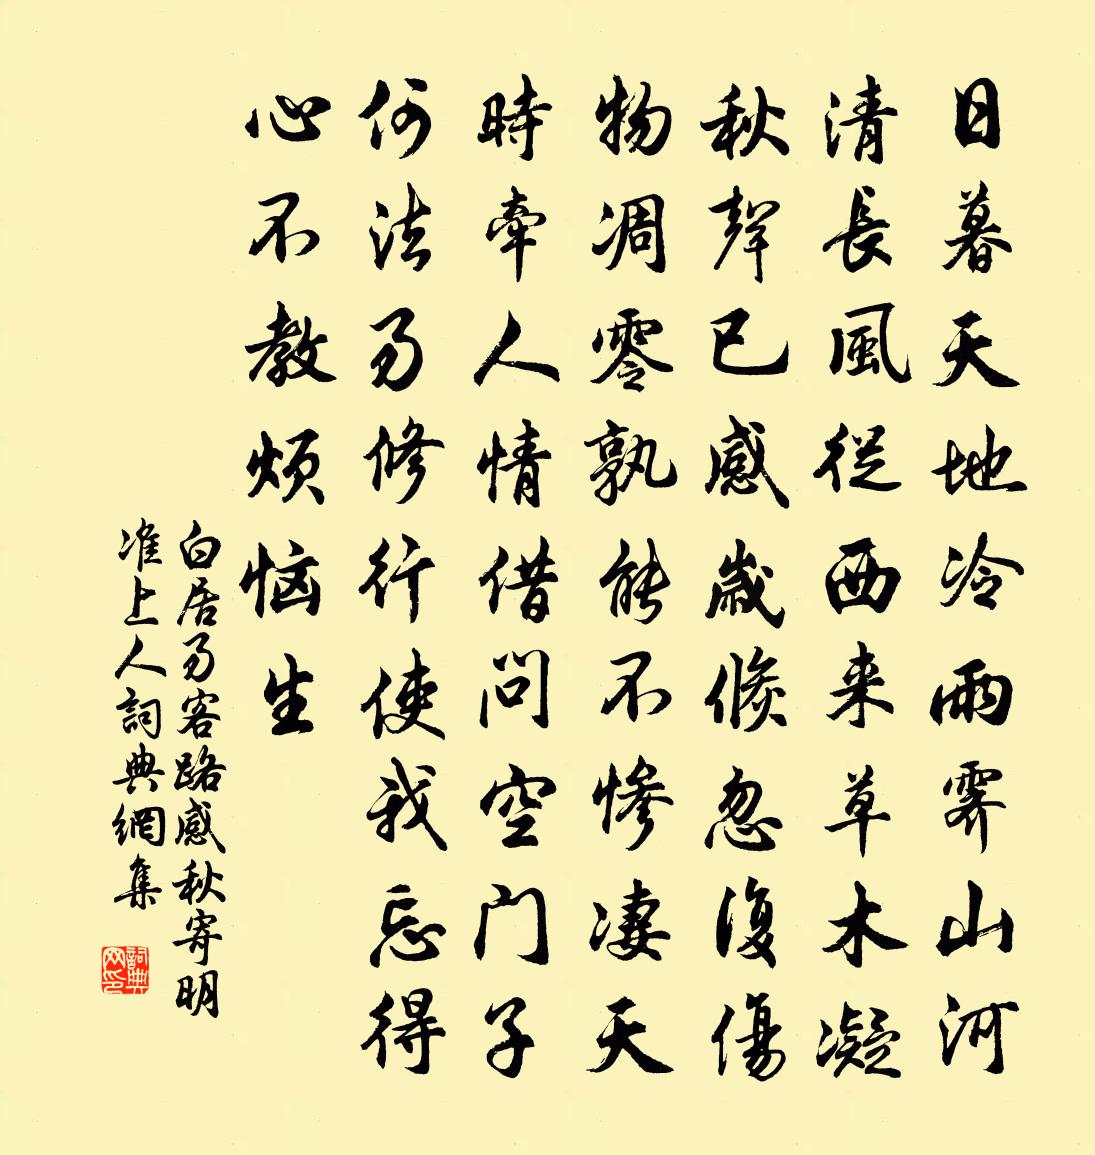 日暮天地冷雨霽山河
清長風從西来草木凝
秋聲已感歲倏忽復傷
物凋零孰能不慘凄天
時牽人情借問空门子
何法易修行使我忘得
心不教烦恼生
白居易客路感秋寄明
准上人詞典網集
詞典
网印